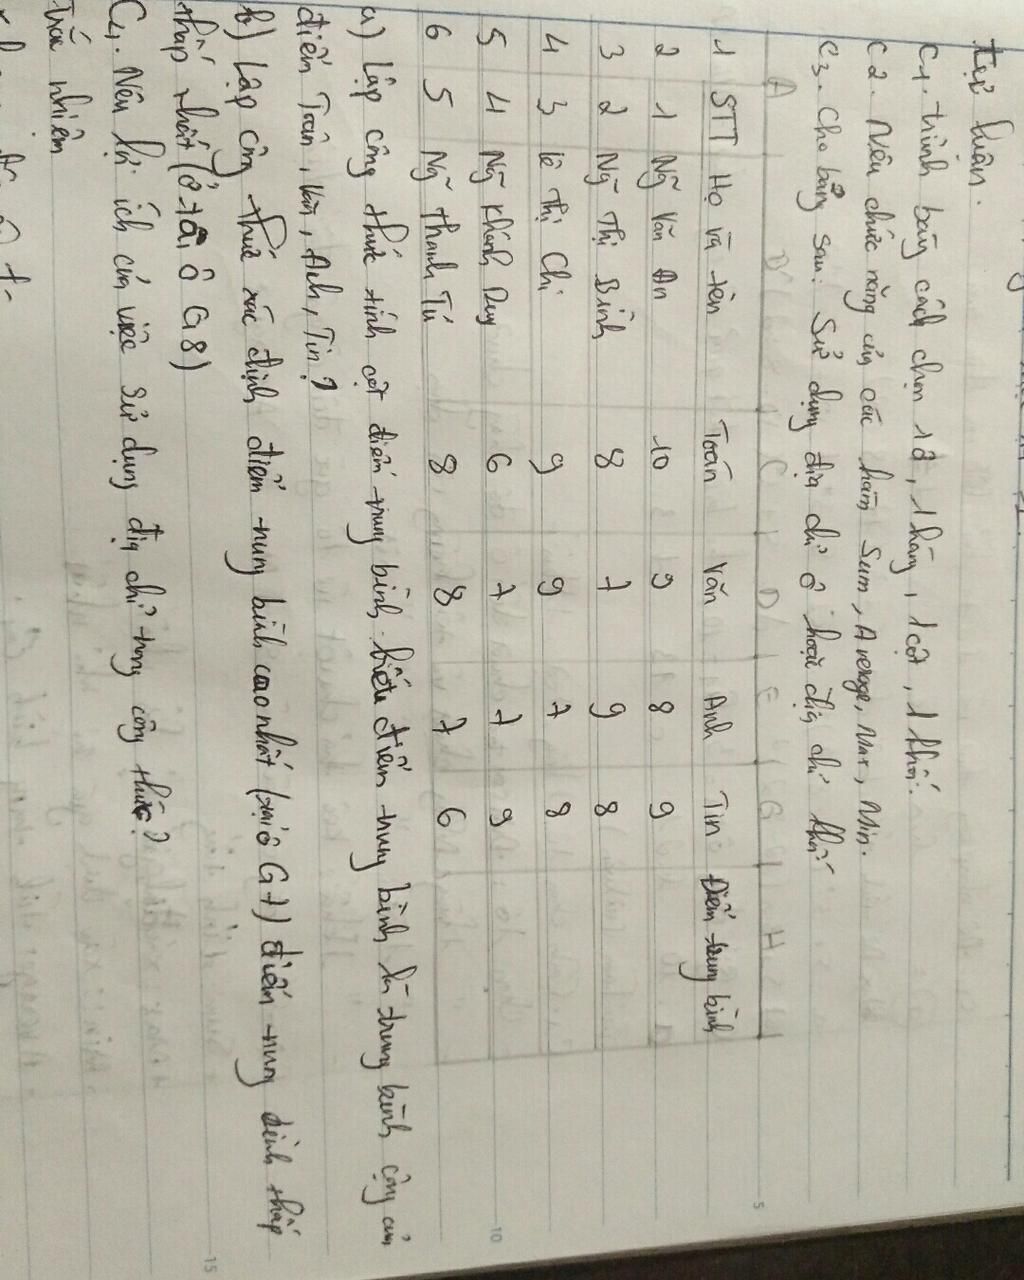 Tự luận.
C1. trình bày cách chọn 1ô, 1 hàng, 1 cột, 1 khối.
C2. Nêu chức năng của các hàm Sum, Average, Max, Min.
C3. Cho bảng sau: Sử dụng địa chỉ ô hoặc địa chỉ khối
A B C D E G H
1 STT Họ và tên Toán Văn Anh Tin Điểm trung bình
2 1 Ng Văn An 10 9 8 9
3 2 Ng Thị Bình 8 7 9 8
4 3 Lê Thị Chi 9 9 7 8
5 4 Ng Khánh Duy 6 7 7 9
6 5 Ng Thanh Tú 8 8 7 6
a) Lập công thức tính cột điểm trung bình. biết điểm trung bình là trung bình cộng của
điểm Toán, Văn, Anh, Tin?
b) Lập công thức xác định điểm trung bình cao nhất (tại ô G7) điểm trung bình thấp
thấp nhất (ở tại ô G8)
C4. Nêu lợi ích của việc sử dụng địa chỉ trong công thức?
Trắc nhiệm
5
10
15